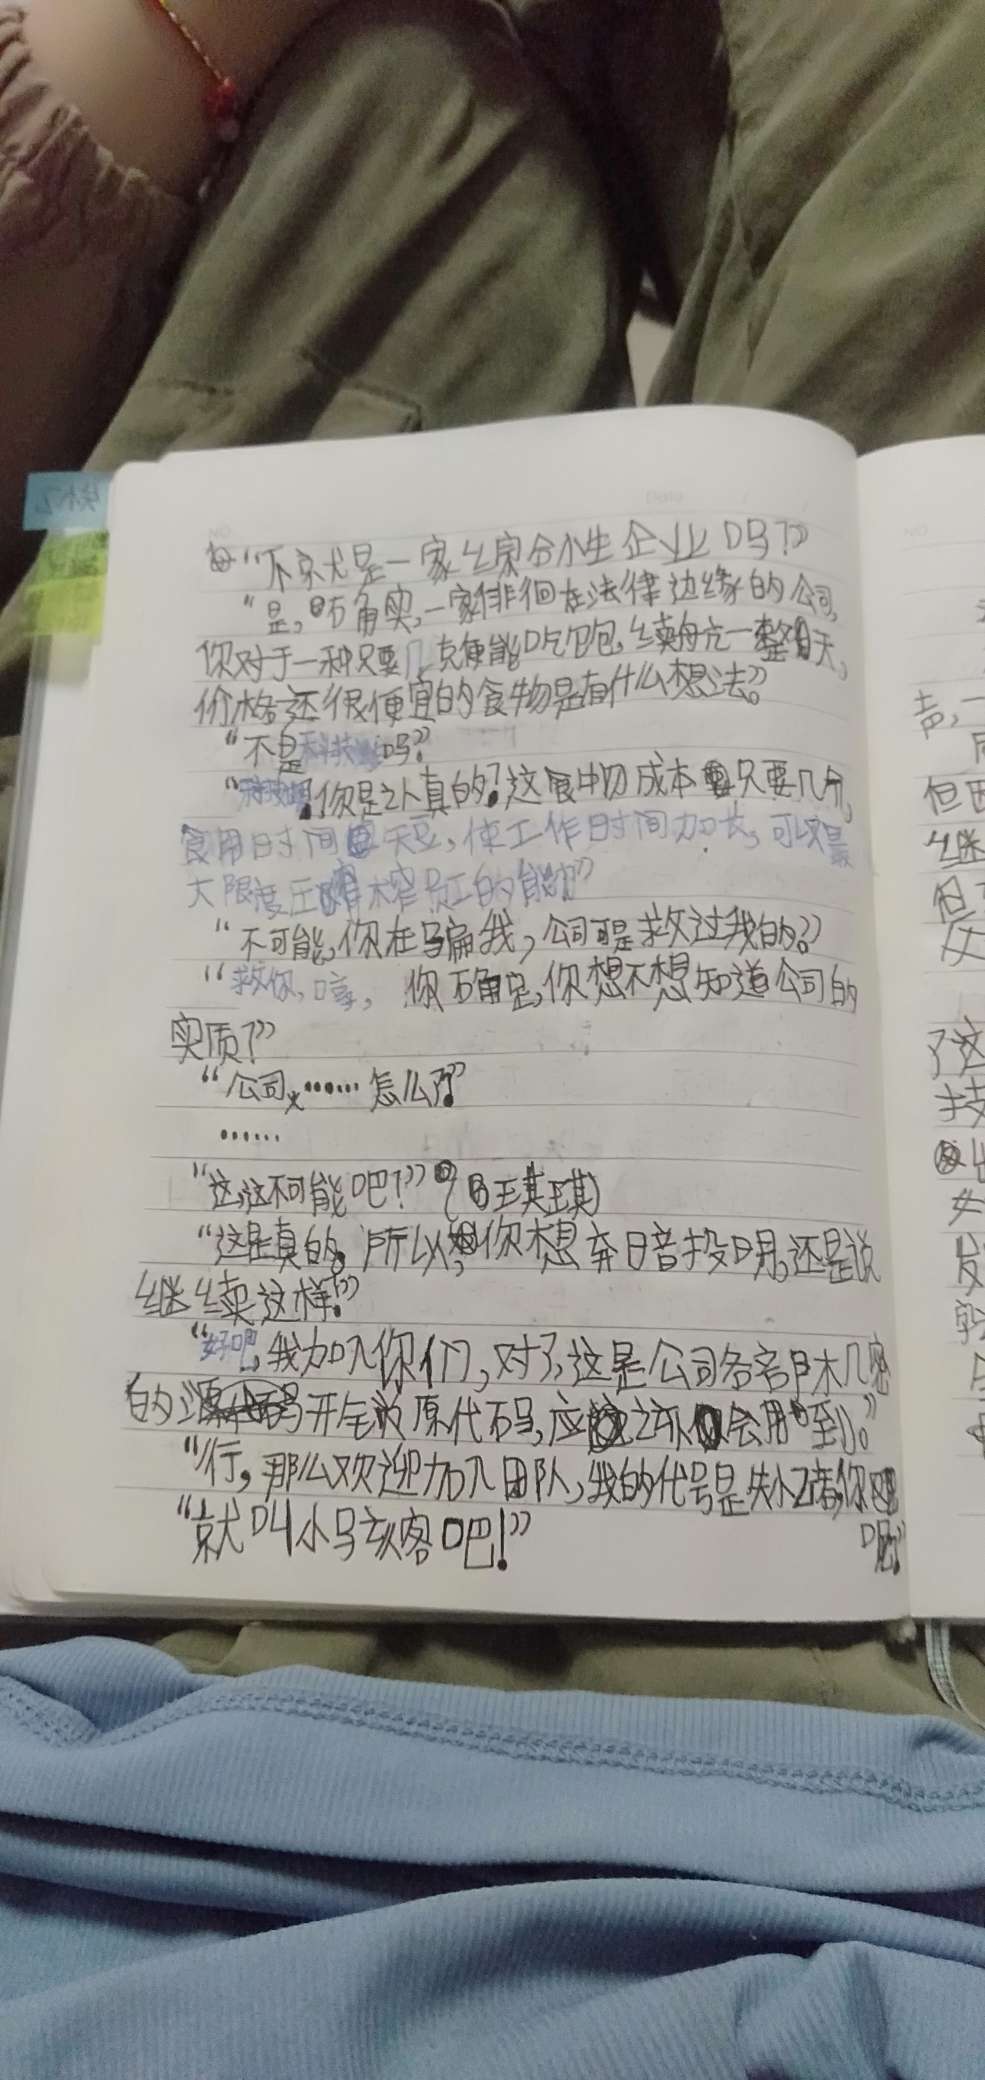 "不就是一家综合性企业吗?"
"是,的确实,一家徘徊在法律边缘的公司,
你对于一种只要几克便能吃饱,续航一整天,
价格还很便宜的食物是有什么想法。"
"不是科技吗?"
"科技?你是认真的?这食物成本只要几分,
食用时间短,使工作时间加长,可以最
大限度压榨员工的能力"
"不可能,你在骗我,公司可是救过我的?"
"救你,哼,你确定,你想不想知道公司的
实质?"
"公司,……怎么了?"
……
"这,这不可能吧?"(马琪琪)
"这是真的。所以,你想弃暗投明,还是说
继续这样?"
"好吧,我加入你们,对了,这是公司各部门机密
的开全源原代码,应该会用到。"
"行,那么欢迎加入团队,我的代号是你
呢?"
"就叫小马骇客吧!"
Date
No